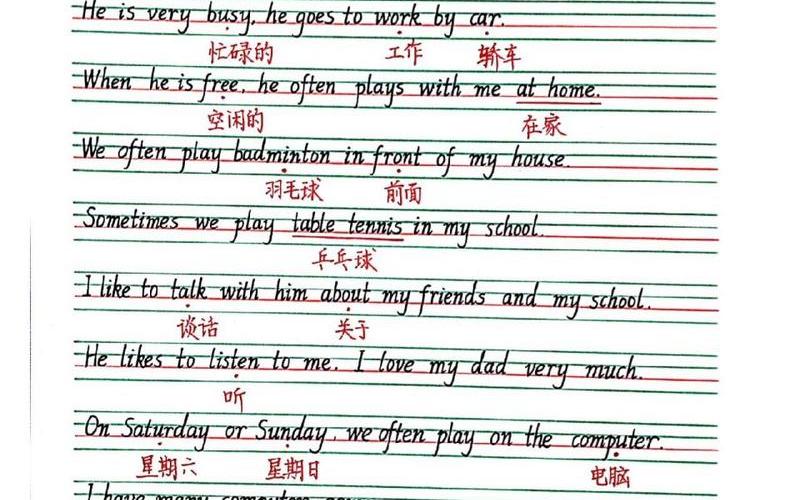 He is very busy, he goes to work by car.
忙碌的 工作 轿车
When he is free, he often plays with me at home.
空闲的 在家
We often play badminton in front of my house.
羽毛球 前面
Sometimes we play table tennis in my school.
乒乓球
I like to talk with him about my friends and my school.
谈话 关于
He likes to listen to me. I love my dad very much.
听
On Saturday or Sunday, we often play on the computer.
星期六 星期日 电脑
I have many computers